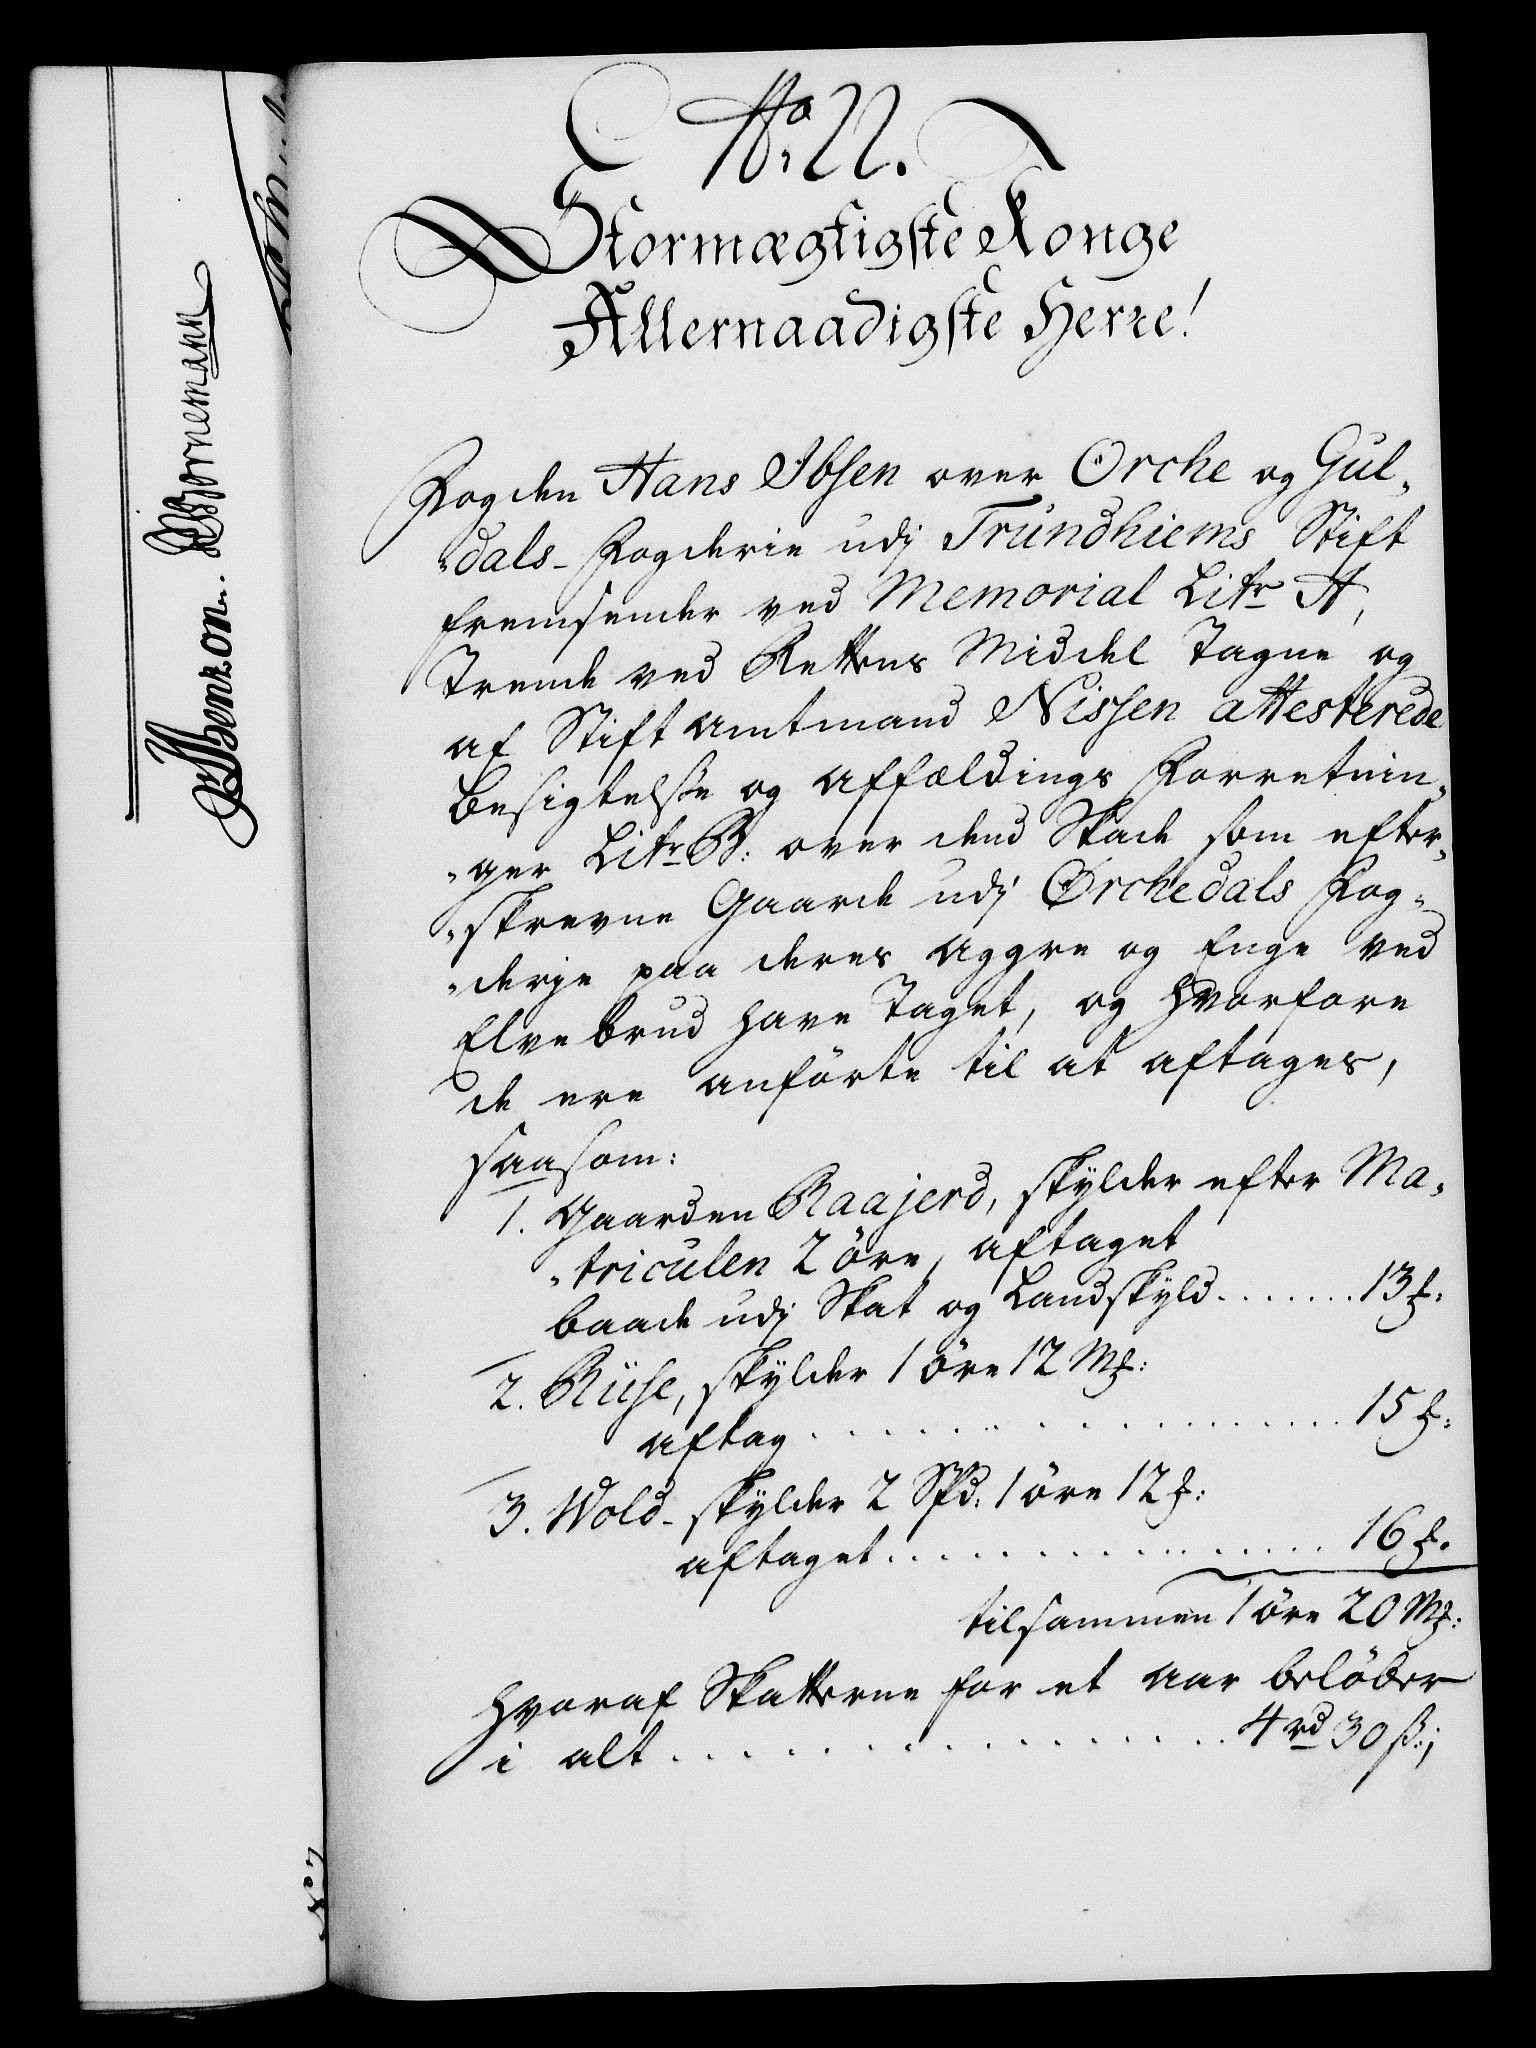 No: 22.
Stormægtigste Konge
Allernaadigste Herre!
Fogden Hans Ibsen over Orche og Gul„
„dals- Fogderie udj Trundhiems Stift
fremsender ved Memorial Litr A,
Trende ved Rettens Middel tagne og
af Stift amtmand Nissen attesterede
besigtelse og affældings Forretnin„
„ger Litr B: over dend Skade som efter„
„skrevne Gaarde udj Ørchedals Fog„
„derje paa deres aggre og Enge ved
Elvebrud have taget, og hvorfore
de ere anførte til at aftages,
saasom:
1. Gaarden Raajerd, skylder efter Ma„
„triculen 2 öre, aftaget
baade udj Skat og Landskyld ....... 13 ℔:
2. Rüse, skylder 1 öre 12 M℔:
aftag .................. 15 ℔:
3. Wold- skylder 2 Spd: 1 öre 12 ℔:
aftaget ................ 16 ℔.
tilsammen 1 öre 20 M℔:
hvoraf Skatterne for et aar belöber
i alt .................. 4 rd 30 ß:;
Benzon. Bornemann
No 2